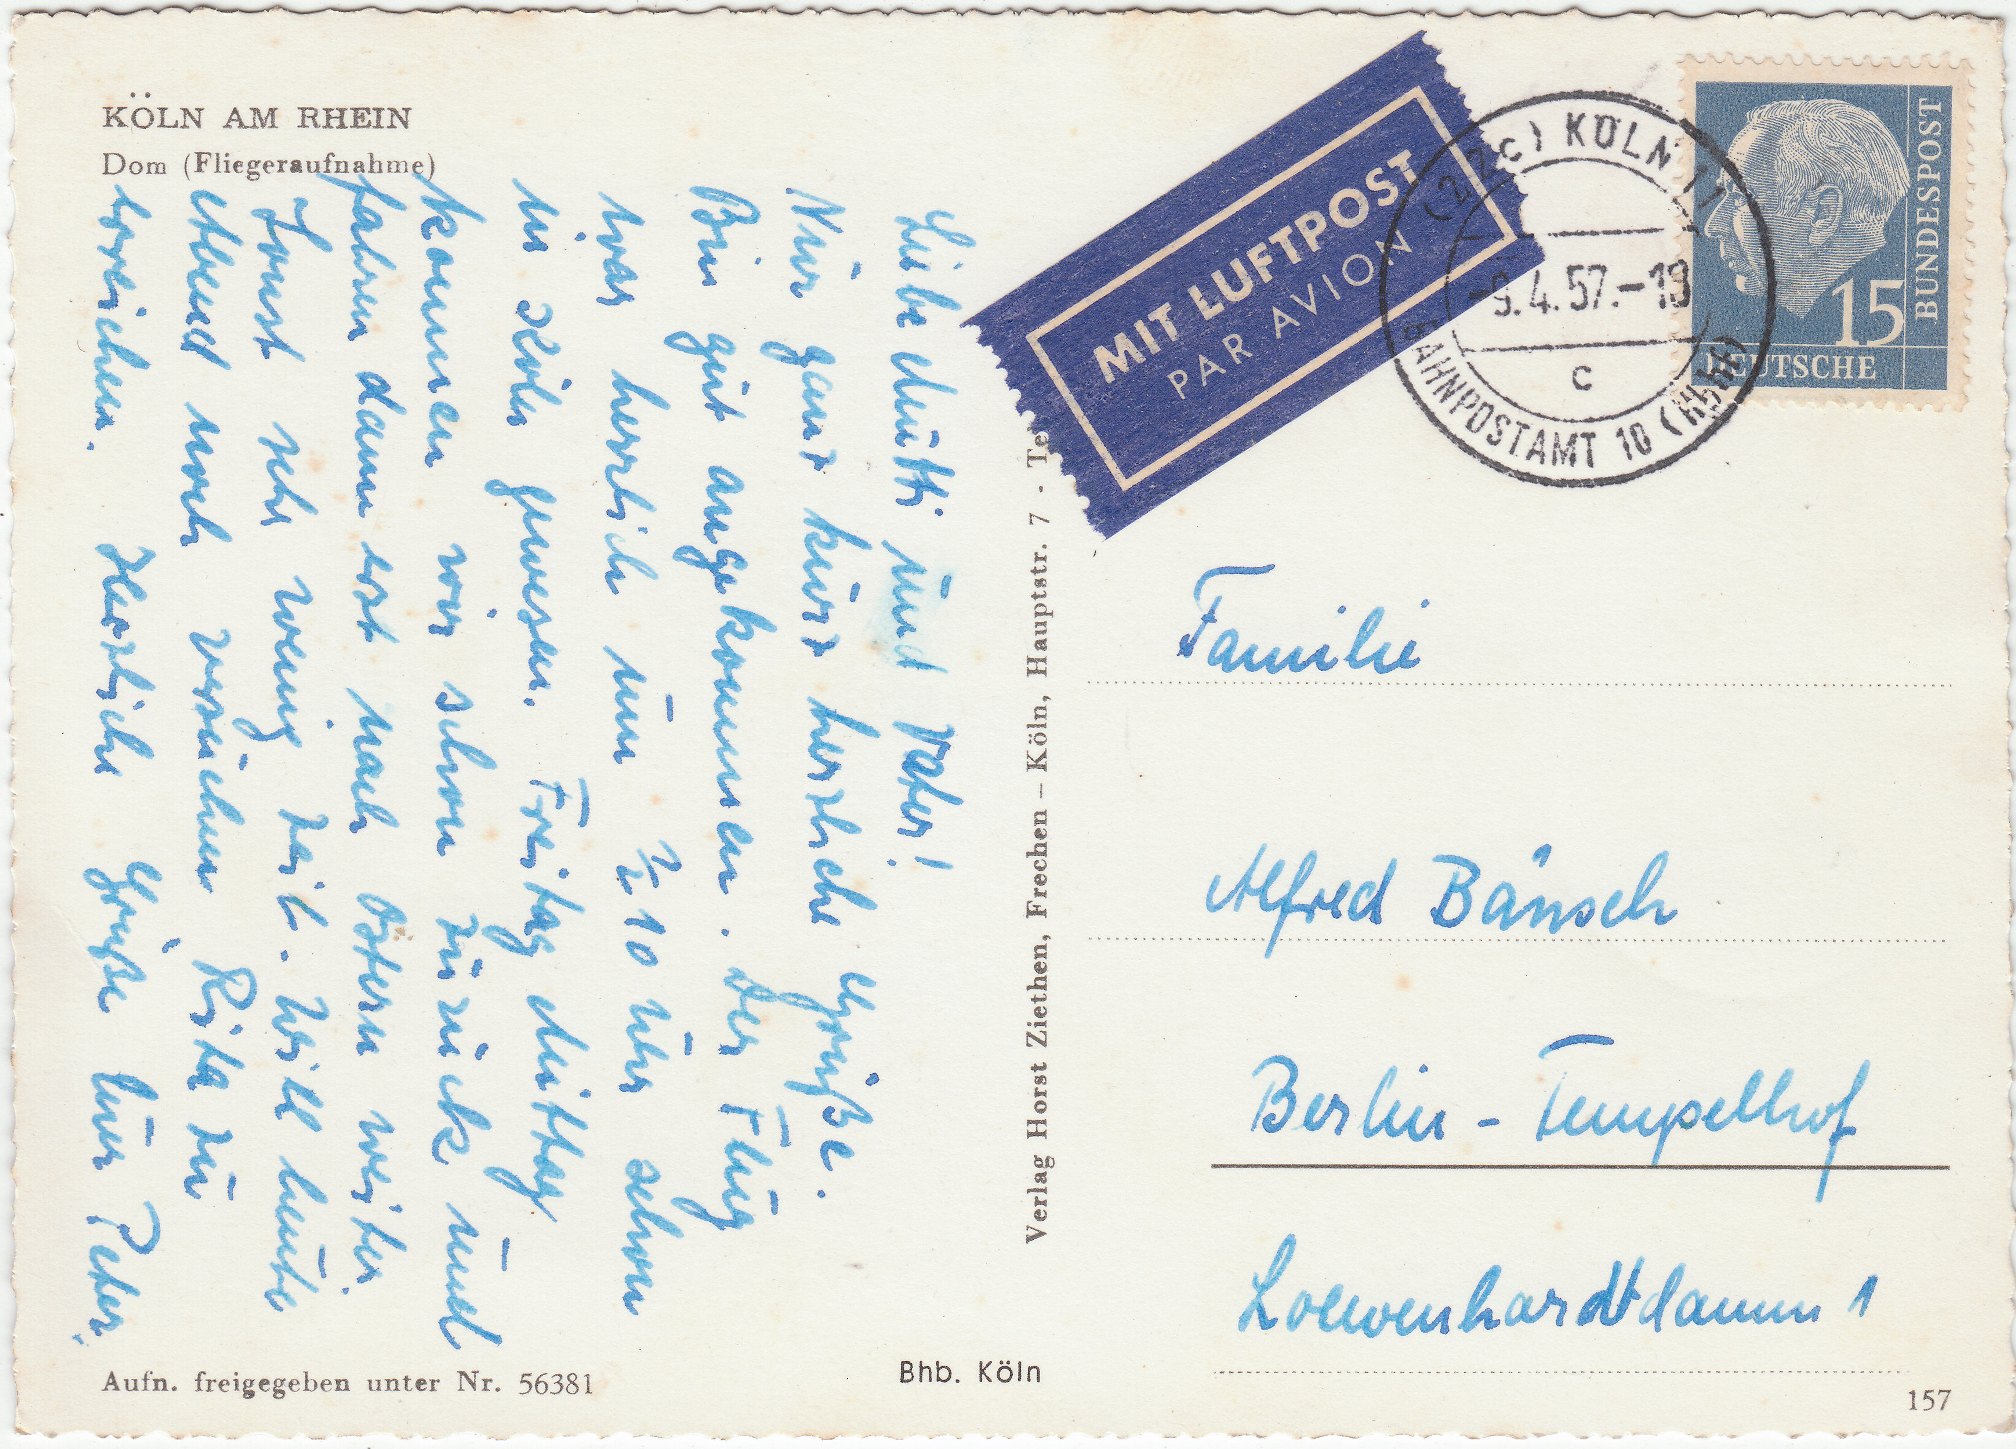 KÖLN AM RHEIN
Dom (Fliegeraufnahme)
Liebe Mutti und Vater!
Nur ganz kurz herzliche Grüße.
Bin gut angekommen. Der Flug
war herrlich um ½ 10 Uhr schon
in Köln gewesen. Freitag Mittag
kommen wir schon zurück und
fahren dann erst nach Ostern weiter.
Sonst sehr wenig Zeit. Will heute
Abend noch versuchen Rita zu
erreichen. Herzliche Grüße Euer Peter.
Aufn. freigegeben unter Nr. 56381
Bhb. Köln
Verlag Horst Ziethen, Frechen – Köln, Hauptstr. 7 - Te
MIT LUFTPOST
PAR AVION
(22c) KÖLN 11
-9.4.57.-19
c
BAHNPOSTAMT 10 (Hbhf)
15
DEUTSCHE
BUNDESPOST
Familie
Alfred Bänsch
Berlin - Tempelhof
Loewenhardtdamm 1
157